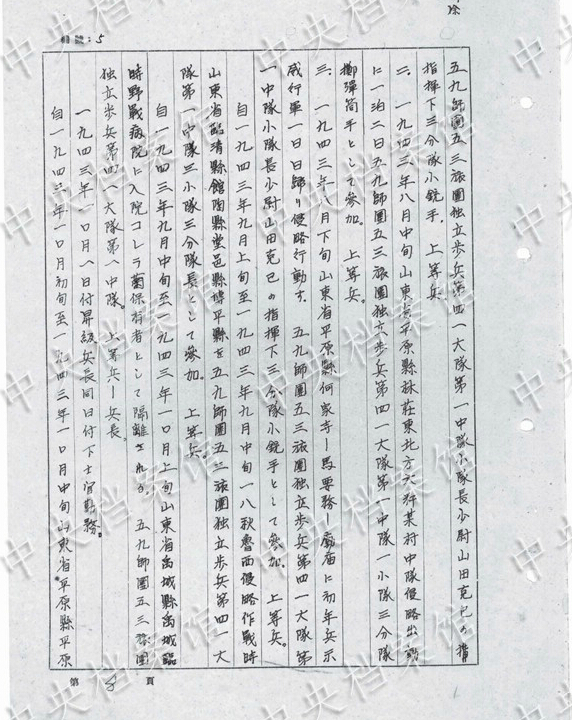 五九師團五三旅團独立歩兵第四一大隊第一中隊小隊長少尉山田克己の指揮下三分隊小銃手、上等兵。
二、一九四三年八月中旬山東省平原縣林莊東北方六粁某村中隊侵略出動
に一泊二日五九師團五三旅團独立歩兵第四一大隊第一中隊一小隊三分隊
擲弾筒手として參加。上等兵。
三、一九四三年八月下旬山東省平原縣何家寺ー馬要務ー廟に初年兵示
威行軍一日日歸り侵略行動す、五九師團五三旅團独立歩兵第四一大隊第
一中隊小隊長少尉山田克己の指揮下三分隊小銃手として參加。上等兵。
自一九四三年九月上旬至一九四三年九月中旬一八秋魯西侵略作戰時
山東省臨清縣館陶縣堂邑縣博平縣を五九師團五三旅團独立歩兵第四一大
隊第一中隊三小隊三分隊長として參加。上等兵。
自一九四三年九月中旬至一九四三年一〇月上旬山東省禹城縣禹城臨
時野戰病院に入院コレラ菌保有者として隔離される。五九師團五三旅團
独立歩兵第四一大隊第一中隊。上等兵ー兵長。
一九四三年一〇月一日付昇級兵長同日付下士官勤務。
自一九四三年一〇月初旬至一九四三年一〇月中旬山東省平原縣平原
第 8 頁
中央档案馆